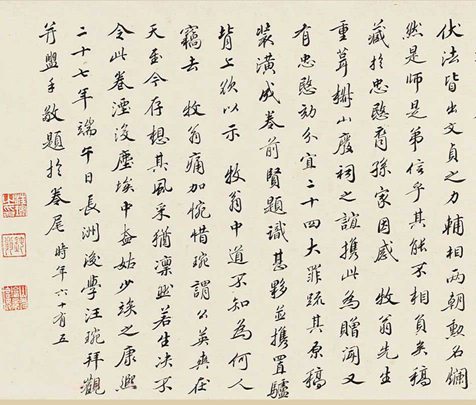 伏法皆出文貞之力輔相兩朝勳名爛
然是師是弟信乎其能不相負矣稿
藏於忠愍裔孫家因感 牧翁先生
重葺樹山廢祠之誼携此為贈聞又
有忠愍劾分宜二十四大罪疏其原稿
裝潢成卷前賢題識甚夥並携置驢
背上欲以示 牧翁中道不知為何人
竊去 牧翁痛加惋惜琬謂公英爽在
天至今存想其風采猶凜然若生決不
令此卷湮沒塵埃中盍姑少俟之康熙
二十七年端午日長洲後學汪琬拜觀
并盥手敬題於卷尾時年六十有五